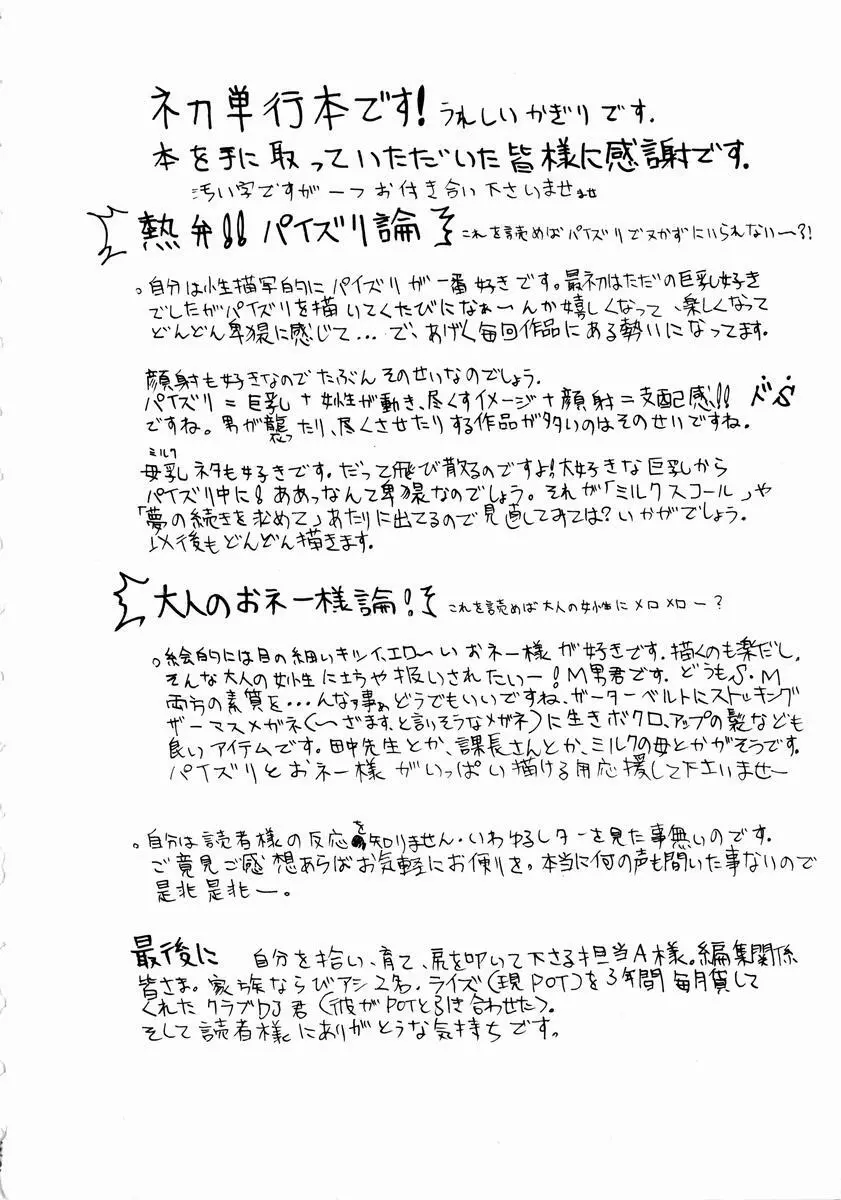 初単行本です! うれしいかぎりです.
本を手に取っていただいた皆様に感謝です.
汚い字ですが一つお付き合い下さいませ ませ
熱弁!! パイズリ論 これを読めばパイズリでヌかずにいられないー?!
。自分は性描写的にパイズリが一番好きです。最初はただの巨乳好き
でしたがパイズリを描いてくたびになぁーんか嬉しくなって、楽しくなって
どんどん卑猥に感じて...で、あげく毎回作品にある勢いになってます.
顔射も好きなので たぶん そのせいなのでしょう.
パイズリ = 巨乳 + 女性が動き、尽くすイメージ + 顔射 = 支配感!! ドS
ですね。男が襲ったり、尽くさせたりする作品が多いのはそのせいですね.
ミルク
母乳ネタも好きです. だって飛び散るのですよ!大好きな巨乳から
パイズリ中に! ああっなんて卑猥なのでしょう. それが「ミルクスコール」や
「夢の続きを求めて」あたりに出てるので見直してみては? いかがでしょう.
以後もどんどん描きます.
大人のおネー様論! これを読めば大人の女性にメロメロー?
。絵的には目の細いキツイ、エロ~いおネー様が好きです. 描くのも楽だし,
そんな大人の女性に土ちや扱いされたいー! M男君です. どうもS・M
両方の素質を...んなァ事ぁどうでもいいですね、ガーターベルトにストッキング
ザーマスメガネ(~ざます、と言いそうなメガネ)に生きボクロ、アップの髪なども
良いアイテムです. 田中先生とか、課長さんとか、ミルクの母とかがそうです.
パイズリとおネー様がいっぱい描ける用応援して下さいませー
。自分は読者様の反応を知りません・いわゆるレターを見た事無いのです.
ご意見ご感想あらばお気軽にお便りを。本当に何の声も聞いた事ないので
是非是非ー。
最後に 自分を拾い、育て、尻を叩いて下さる担当A様。編集関係
皆さま。家族ならびアシ2名. ライズ(現POT)を3年間毎月貸して
くれたクラブDJ君(彼がPOTと引き合わせた)。
そして読者様にありがとうな気持ちです。